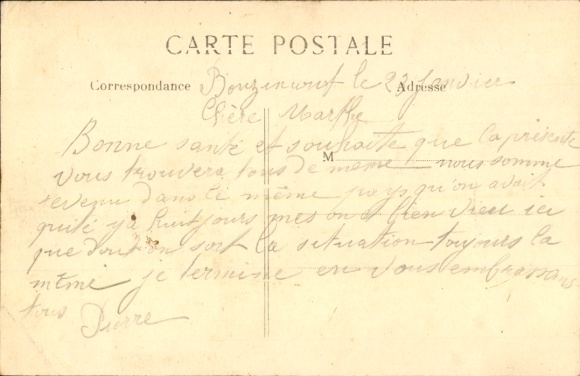 CARTE POSTALE
Correspondance Adresse
le 23 Janvier
Chère Marthe
Bonne santé et souhaite que la présente
vous trouvera tous de meme nous somme
revenu dans le même pays qu'on avait
quité ya huit jours mes on bien vieu ici
que dont on sort la situation toujours la
même je termine en vous embrassans
tous Pierre
M